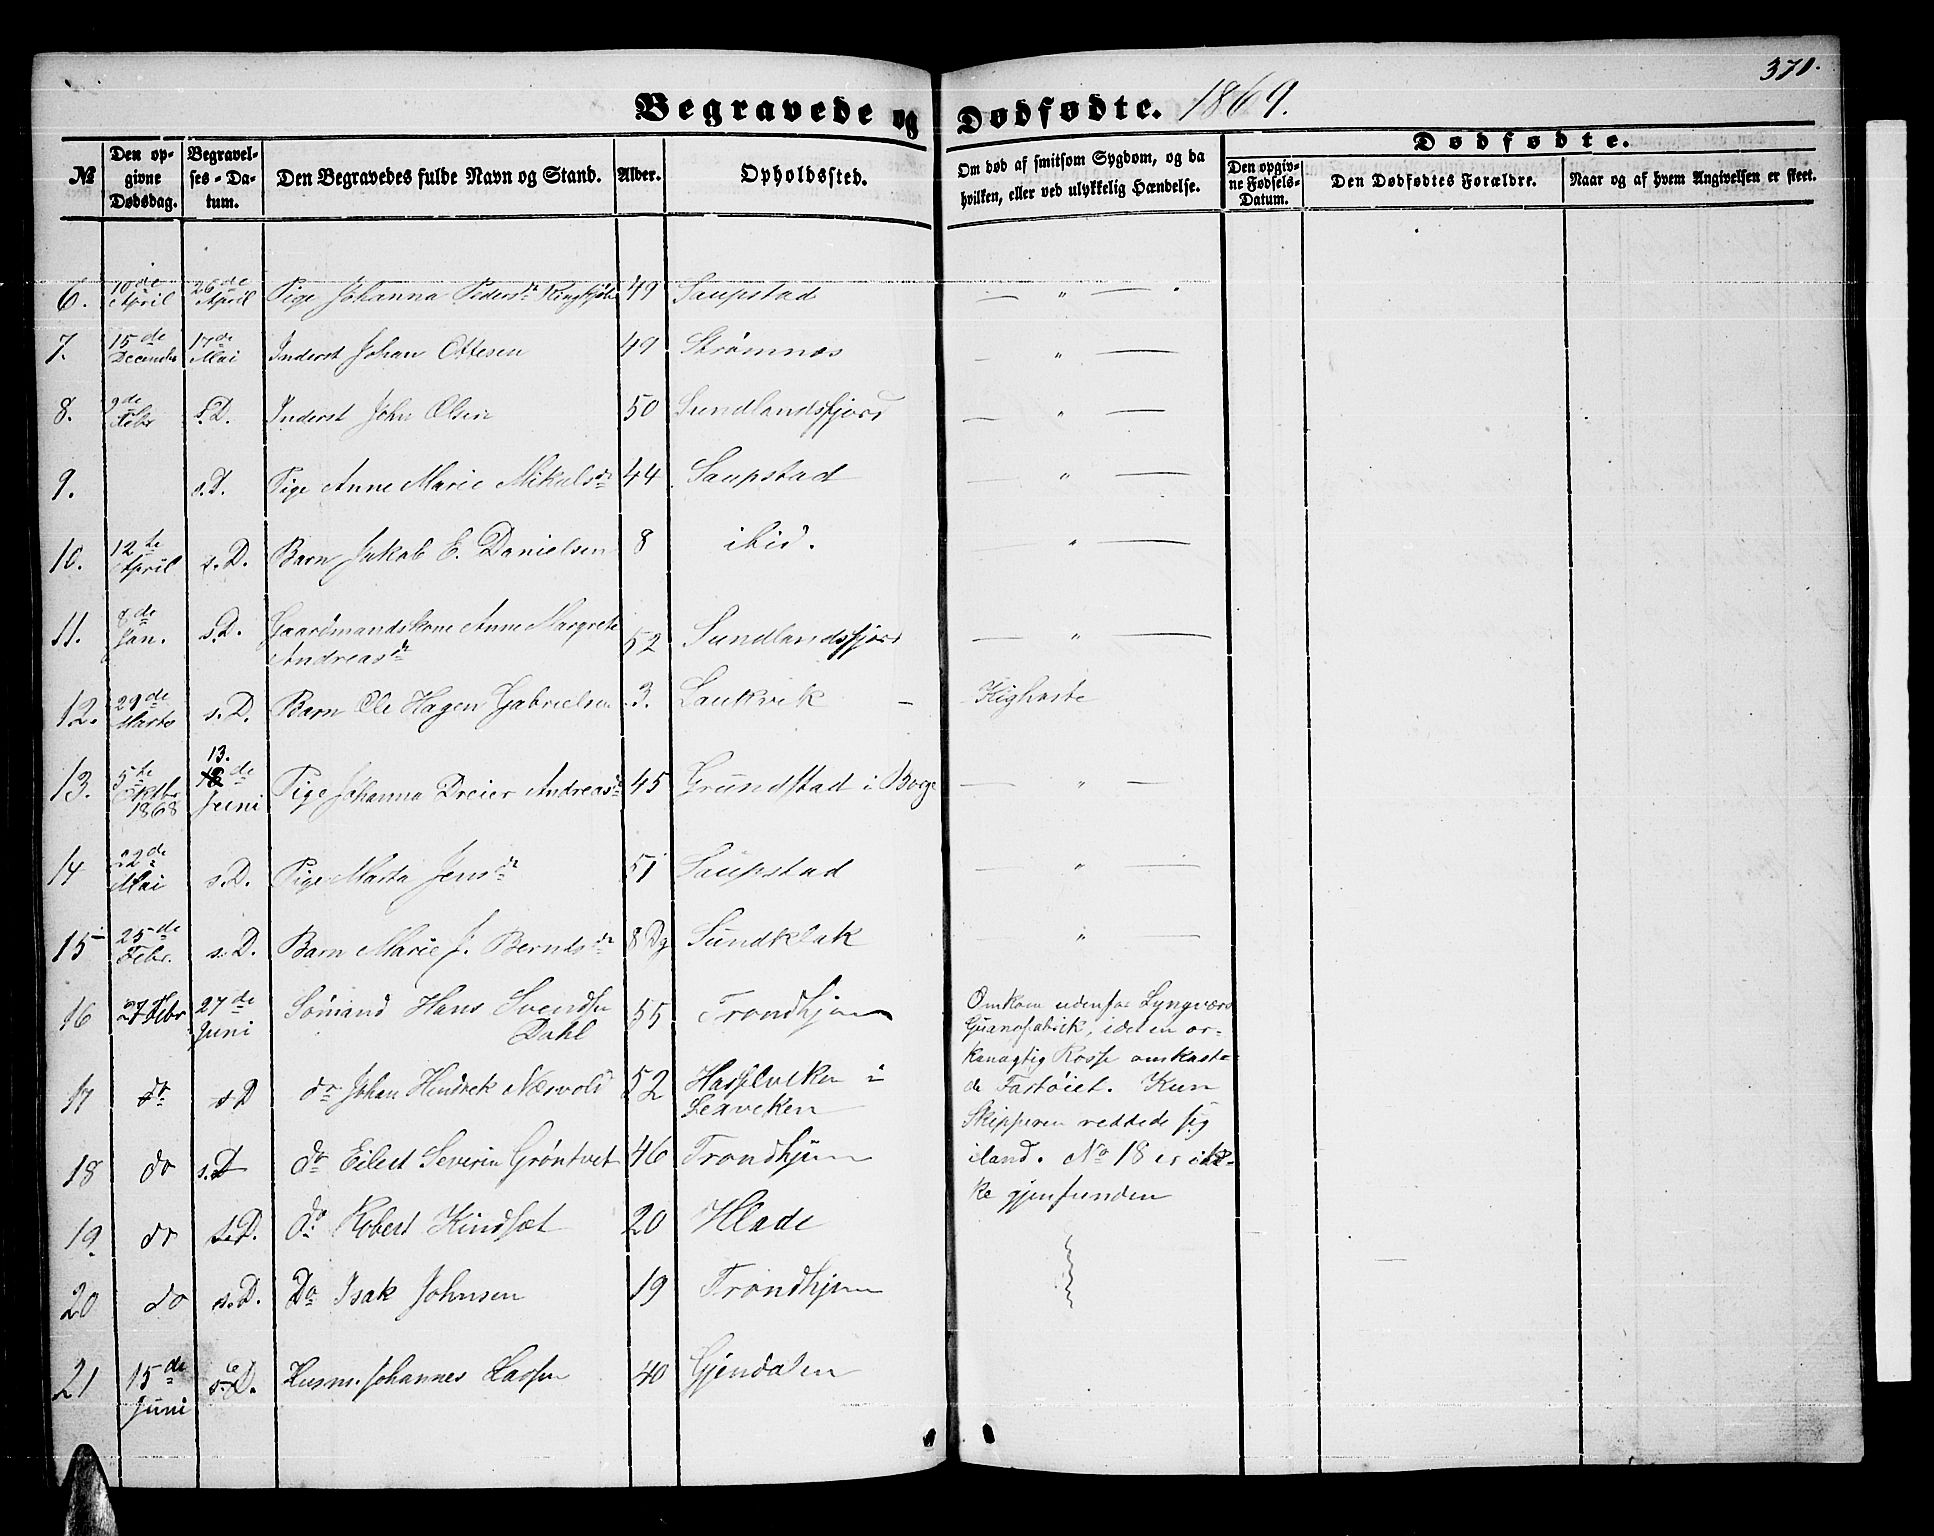 371.
Begravede og Dødfødte. 1869.
№
Den op-
givne
Dødsdag.
Begravel-
ses-Da-
tum.
Den Begravedes fulde Navn og Stand.
Alder.
Opholdssted.
Om død af smitsom Sygdom, og da
hvilken, eller ved ulykkelig Hændelse.
Dødfødte.
Den opgiv-
ne Fødsels-
Datum.
Den Dødfødtes Forældre.
Naar og af hvem Angivelsen er skeet.
6. 10de April 26de April Pige Johanna Pedersdr 49 Saupstad — " —
7. 15de December 17de Mai Inderst Johan Ottesen 49 Strømnæs — " —
8. 9de Febr s.D. Inderst John Olsen 50 Sundlandsfjord — " —
9. s.D. Pige Anne Marie Mikalsdr 44 Saupstad — " —
10. 12te April s.D. Barn Jakob E. Danielsen 8 ibid. — " —
11. 8de Jan. s.D. Gaardmandskone Anne Margrete
Andreasdr 52 Sundlandsfjord — " —
12. 29de Marts s.D. Barn Ole Hagen Gabrielsen 3. Laukvik — Kighoste
13. 5te Oktbr 1868 13. de Juni Pige Johanna Dreier Andreasdr 45 Grundstad i Borge — " —
14 22de Mai s.D. Pige Marta Jensdr 51 Saupstad — " —
15 25de Febr. s.D. Barn Marie J. Berndsdr 8 Dg Sundklak — " —
16 27 Febr 27de Juni Sømand Hans Svendsen
Dahl 55 Trondhjem
17 do s.D do Johan Hindrek Nærvold 52 i
Lexviken
18 do s.D do Eilert Severin Grøntvet 46 Trondhjem
19. do s.D. do Robert Kindsæt 20 Hlade
20 do s.D. Do Isak Johnsen 19 Trondhjem
21 15de Juni s.D. Husm. Johannes Larsen 40 Gjendalen
Omkom udenfor Lyngvær
Guanofabrik, idet en or-
kanagtig Rosse omkaste-
de Fartøiet. Kun
Skipperen reddede sig
iland. No 18 er ik-
ke gjenfunden